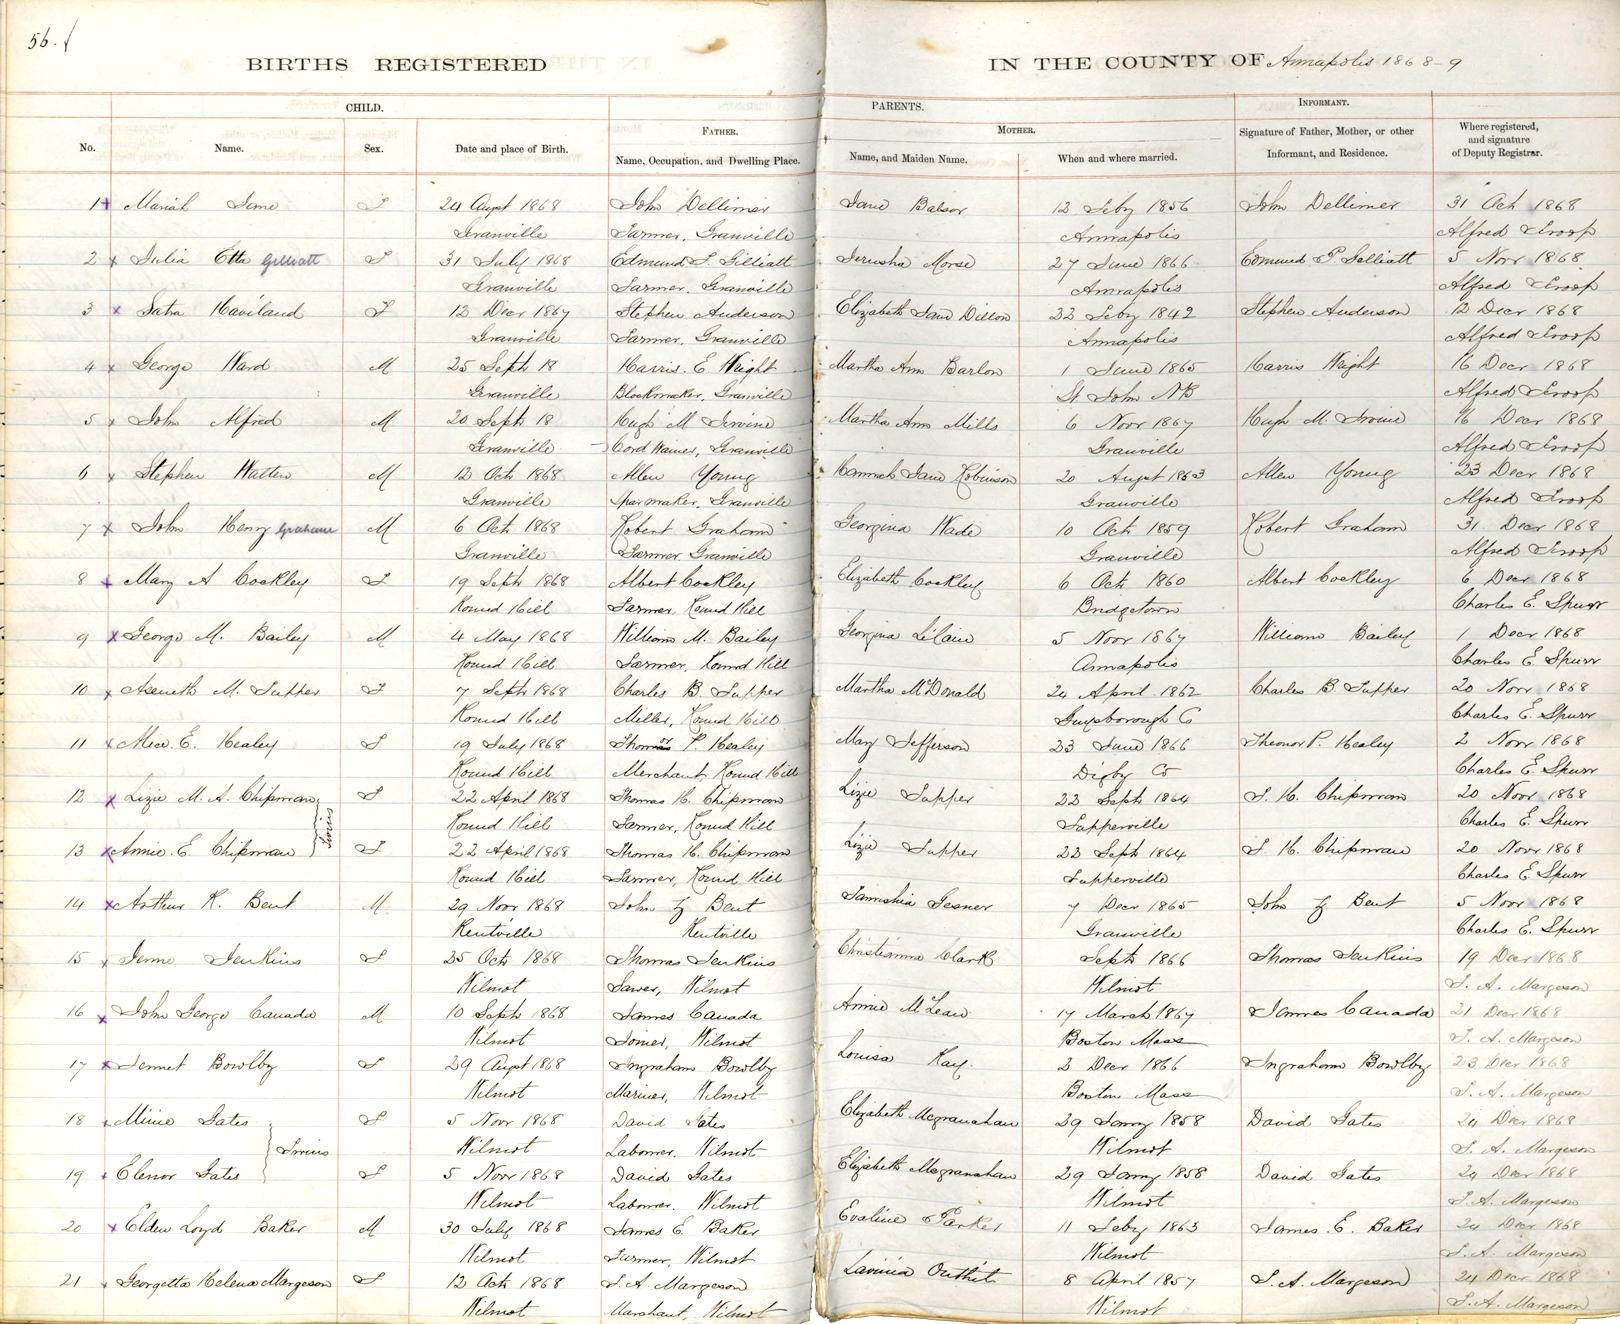 56.
BIRTHS REGISTERED IN THE COUNTY OF Annapolis 1868-9
CHILD. PARENTS. INFORMANT.
No. Name. Sex. Date and place of Birth. FATHER. Name, Occupation, and Dwelling Place. MOTHER. Name, and Maiden Name. When and where married. Signature of Father, Mother, or other Informant, and Residence. Where registered, and signature of Deputy Registrar.
1 x Mariah Jane F 24 Augst 1868 John Dellimer Jane Balsor 12 Feby 1856 John Dellimer 31 Oct 1868
Granville Farmer, Granville Annapolis Alfred Troop
2 x Julia Etta Gilliatt F 31 July 1868 Edmund F Gilliatt Jerusha Morse 27 June 1866 Edmund F. Gilliatt 5 Novr 1868
Granville Farmer, Granville Annapolis Alfred Troop
3 x Haviland F 12 Decr 1867 Stephen Anderson Elizabeth Jane Dillon 22 Feby 1842 Stephen Anderson 12 Decr 1868
Granville Farmer, Granville Annapolis Alfred Troop
4 x George Ward M 25 Septr 18 Harris. E Weight Martha Ann Barlon 1 June 1865 Harris Weight 16 Decr 1868
Granville Blockmaker, Granville St John NB Alfred Troop
5 x John Alfred M 20 Septr 18 Hugh M Irvine Martha Ann Mills 6 Novr 1867 Hugh M. Irvine 16 Decr 1868
Granville Cord Wainer, Granville Granville Alfred Troop
6 x Stephen Watten M 12 Oct 1868 Allen Young Hannah Jane Robinson 20 Augst 1863 Allen Young 23 Decr 1868
Granville Sparmaker, Granville Granville Alfred Troop
7 x John Henry Grahame M 6 Oct 1868 Robert Graham Georgina Wade 10 Oct 1859 Robert Graham 31 Decr 1868
Granville Farmer, Granville Granville Alfred Troop
8 x Mary A Cockley F 19 Septr 1868 Albert Cockley Elizabeth Cockley 6 Oct 1860 Albert Cockley 6 Decr 1868
Round Hill Farmer, Round Hill Bridgetown Charles E. Spurr
9 x George M. Bailey M 4 May 1868 William M. Bailey Georgina LeCain 5 Novr 1867 William Bailey 1 Decr 1868
Round Hill Farmer, Round Hill Annapolis Charles E Spurr
10 x Aseneth M. Tupper F 7 Septr 1868 Charles B. Tupper Martha McDonald 24 April 1862 Charles B. Tupper 20 Novr 1868
Round Hill Miller, Round Hill Guysborough Co Charles E. Spurr
11 x Alice E. Healey F 19 July 1868 Thomas or P. Healey Mary Jefferson 23 June 1866 Theonor P. Healey 2 Novr 1868
Round Hill Merchant, Round Hill Digby Co Charles E. Spurr
12 x Lizie M. A. Chipman F 22 April 1868 Thomas H. Chipman Lizie Tupper 22 Septr 1864 T. H. Chipman 20 Novr 1868
Twins Round Hill Farmer, Round Hill Tupperville Charles E. Spurr
13 x Annie. E. Chipman F 22 April 1868 Thomas H. Chipman Lizie Tupper 22 Septr 1864 T. H. Chipman 20 Novr 1868
Round Hill Farmer, Round Hill Tupperville Charles E. Spurr
14 x Arthur R. Bent M. 29 Novr 1868 John Bent Gesner 7 Decr 1865 John Bent 5 Novr 1868
Kentville Kentville Granville Charles E. Spurr
15 x Jenkins F 25 Oct 1868 Thomas Jenkins Christianna Clark Septr 1866 Thomas Jenkins 19 Decr 1868
Wilmot Wilmot Wilmot S. A. Margeson
16 x John George Canada M 10 Septr 1868 James Canada Annie McLean 17 March 1867 James Canada 21 Decr 1868
Wilmot Joiner, Wilmot Boston Mass S. A. Margeson
17 x Jennet Bowlby F 29 Augst 1868 Ingraham Bowlby Louisa Kay. 2 Decr 1866 Ingraham Bowlby 23 Decr 1868
Wilmot Mariner, Wilmot Boston Mass S. A. Margeson
18 x Minie Gates F 5 Novr 1868 David Gates Elizabeth Mcgranahan 29 Jany 1858 David Gates 24 Decr 1868
Twins Wilmot Laborer. Wilmot Wilmot S. A. Margeson
19 x Elenor Gates F 5 Novr 1868 David Gates Elizabeth Mcgranahan 29 Jany 1858 David Gates 24 Decr 1868
Wilmot Laborer. Wilmot Wilmot S. A. Margeson
20 x Elden Loyd Baker M 30 July 1868 James E. Baker Evaline Parker 11 Feby 1863 James. E. Baker 24 Decr 1868
Wilmot Farmer, Wilmot Wilmot S. A. Margeson
21 x Georgetta Helena Margeson F 12 Oct 1868 S. A. Margeson Lavinia Outhit 8 April 1857 S. A. Margeson 24 Decr 1868
Wilmot Marchant, Wilmot Wilmot S. A. Margeson